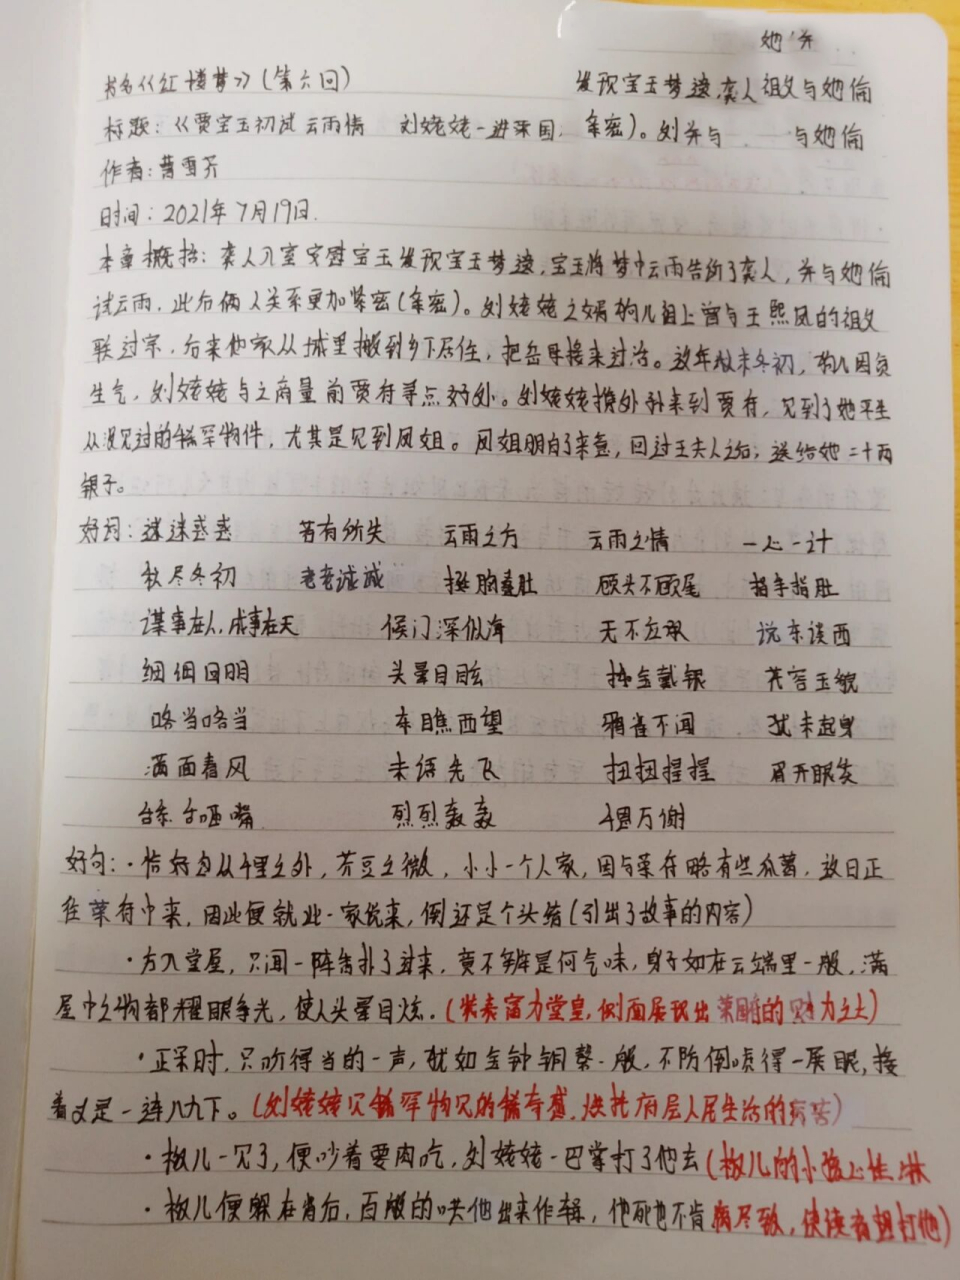 她 并
书名《红楼梦》(第六回) 发现宝玉梦遗,袭人 祖父与她偷
标题:《贾宝玉初试云雨情 刘姥姥一进荣国, 亲密)。刘并与 与她偷
作者:曹雪芹
时间:2021年7月19日.
本章概括:袭人入室安慰宝玉发现宝玉梦遗,宝玉将梦中云雨告诉了袭人,并与她偷
试云雨,此后俩人关系更加紧密(亲密)。刘姥姥之婿狗儿祖上曾与王熙凤的祖父
联过宗,后来他家从城里搬到乡下居住,把岳母接来过活。这年秋末冬初,狗儿因贫
生气,刘姥姥与之商量前贾府寻点好处。刘姥姥携外孙来到贾府,见到了她平生
从没见过的稀罕物件,尤其是见到凤姐。凤姐明白了来意,回过王夫人之后,送给她二十两
银子。
好词:迷迷惑惑 若有所失 云雨之方 云雨之情 一心一计
秋尽冬初 老老诚诚 挺胸叠肚 顾头不顾尾 指手指肚
谋事在人,成事在天 候门深似海 无不应承 说东谈西
细细回明 头晕目眩 插金戴银 花容玉貌
咯当咯当 东瞧西望 鸦雀不闻 犹未起身
满面春风 未语先飞 扭扭捏捏 眉开眼笑
舔舌咂嘴 烈烈轰轰 千恩万谢
好句:·恰好忽从千里之外,芥豆之微,小小一个人家,因与荣府略有些瓜葛,这日正
往荣府中来,因此便就此一家说来,倒还是个头绪(引出了故事的内容)
·方入堂屋,只闻一阵香扑了过来,竟不辨是何气味,身子如在云端里一般,满
屋中之物都耀眼争光,使人头晕目炫.(荣奏富力堂皇,侧面展现出荣国府的财力之大)
·正呆时,只听得当的一声,犹如金钟铜磬一般,不防倒唬得一展眼,接
着又是一连八九下。(刘姥姥见稀罕物见的稀奇感,烘托府层人民生活的疾苦)
·板儿一见了,便吵着要肉吃,刘姥姥一巴掌打了他去(板儿的小孩心性,淋
·板儿便躲在背后,百般的哄他出来作揖,他死也不肯 漓尽致,使读者想打他)